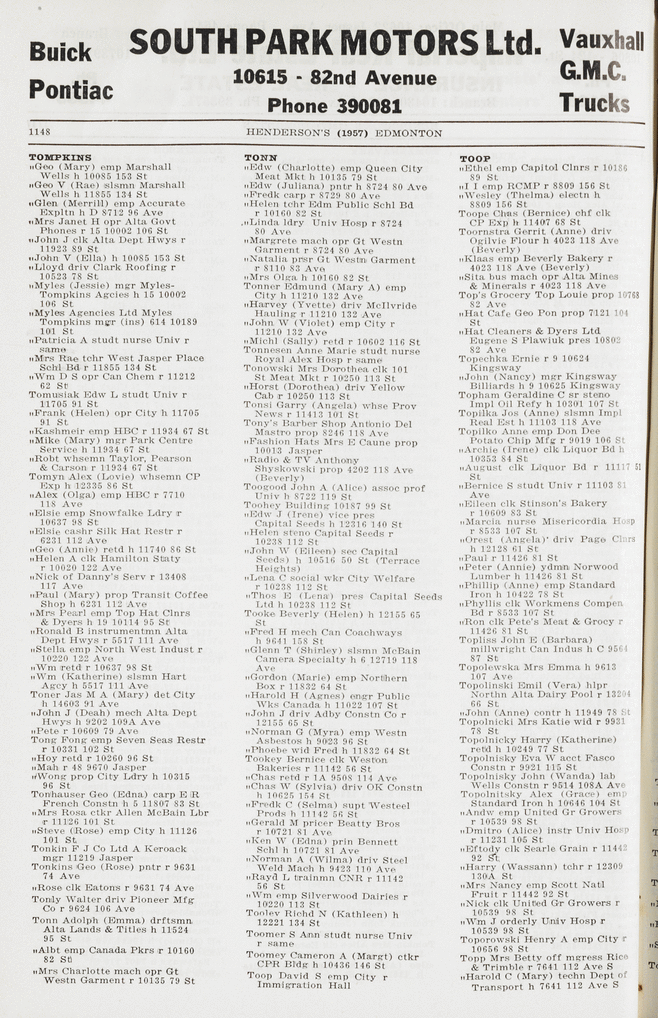 Buick
Pontiac
SOUTH PARK MOTORS Ltd.
10615 - 82nd Avenue
Phone 390081
Vauxhall
G.M.C.
Trucks
1148
HENDERSON'S (1957) EDMONTON
TOMPKINS
„Geo (Mary) emp Marshall
Wells h 10085 153 St
„Geo V (Rae) slsmn Marshall
Wells h 11855 134 St
„Glen (Merrill) emp Accurate
Expltn h D 8712 96 Ave
„Mrs Janet H opr Alta Govt
Phones r 15 10002 106 St
„John J clk Alta Dept Hwys r
11923 89 St
„John V (Ella) h 10085 153 St
„Lloyd driv Clark Roofing r
10523 78 St
„Myles (Jessie) mgr Myles-
Tompkins Agcies h 15 10002
106 St
„Myles Agencies Ltd Myles
Tompkins mgr (ins) 614 10189
101 St
„Patricia A studt nurse Univ r
same
„Mrs Rae tchr West Jasper Place
Schl Bd r 11855 134 St
„Wm D S opr Can Chem r 11212
62 St
Tomusiak Edw L studt Univ r
11705 91 St
„Frank (Helen) opr City h 11705
91 St
„Kashmeir emp HBC r 11934 67 St
„Mike (Mary) mgr Park Centre
Service h 11934 67 St
„Robt whsemn Taylor, Pearson
& Carson r 11934 67 St
Tomyn Alex (Lovie) whsemn CP
Exp h 12335 86 St
„Alex (Olga) emp HBC r 7710
118 Ave
„Elsie emp Snowfalke Ldry r
10637 98 St
„Elsie cashr Silk Hat Restr r
6231 112 Ave
„Geo (Annie) retd h 11740 86 St
„Helen A clk Hamilton Staty
r 10020 122 Ave
„Nick of Danny's Serv r 13408
117 Ave
„Paul (Mary) prop Transit Coffee
Shop h 6231 112 Ave
„Mrs Pearl emp Top Hat Clnrs
& Dyers h 19 10114 95 St
„Ronald B instrumentmn Alta
Dept Hwys r 5517 111 Ave
„Stella emp North West Indust r
10220 122 Ave
„Wm retd r 10637 98 St
„Wm (Katherine) slsmn Hart
Agcy h 5517 111 Ave
Toner Jas M A (Mary) det City
h 14603 91 Ave
„John J (Deah) mech Alta Dept
Hwys h 9202 109A Ave
„Pete r 10609 79 Ave
Tong Fong emp Seven Seas Restr
r 10331 102 St
„Hoy retd r 10260 96 St
„Mah r 48 9670 Jasper
„Wong prop City Ldry h 10315
96 St
Tonhauser Geo (Edna) carp E R
French Constn h 5 11807 83 St
„Mrs Rosa ctkr Allen McBain Lbr
r 11126 101 St
„Steve (Rose) emp City h 11126
101 St
Tonkin F J Co Ltd A Keroack
mgr 11219 Jasper
Tonkins Geo (Rose) pntr h 9631
74 Ave
„Rose clk Eatons r 9631 74 Ave
Tonly Walter driv Pioneer Mfg
Co r 9624 106 Ave
Tonn Adolph (Emma) drftsmn
Alta Lands & Titles h 11524
95 St
„Albt emp Canada Pkrs r 10160
82 St
„Mrs Charlotte mach opr Gt
Westn Garment r 10135 79 St
TONN
„Edw (Charlotte) emp Queen City
Meat Mkt h 10135 79 St
„Edw (Juliana) pntr h 8724 80 Ave
„Fredk carp r 8729 80 Ave
„Helen tchr Edm Public Schl Bd
r 10160 82 St
„Linda ldry Univ Hosp r 8724
80 Ave
„Margrete mach opr Gt Westn
Garment r 8724 80 Ave
„Natalia prsr Gt Westn Garment
r 8110 83 Ave
„Mrs Olga h 10160 82 St
Tonner Edmund (Mary A) emp
City h 11210 132 Ave
„Harvey (Yvette) driv McIlvride
Hauling r 11210 132 Ave
„John W (Violet) emp City r
11210 132 Ave
„Michl (Sally) retd r 10602 116 St
Tonnesen Anne Marie studt nurse
Royal Alex Hosp r same
Tonowski Mrs Dorothea clk 101
St Meat Mkt r 10250 113 St
„Horst (Dorothea) driv Yellow
Cab r 10250 113 St
Tonsi Garry (Angela) whse Prov
News r 11413 101 St
Tony's Barber Shop Antonio Del
Mastro prop 8246 118 Ave
„Fashion Hats Mrs E Caune prop
10013 Jasper
„Radio & TV Anthony
Shyskowski prop 4202 118 Ave
(Beverly)
Toogood John A (Alice) assoc prof
Univ h 8722 119 St
Toohey Building 10187 99 St
„Edw J (Irene) vice pres
Capital Seeds h 12316 140 St
„Helen steno Capital Seeds r
10238 112 St
„John W (Eileen) sec Capital
Seeds) h 10516 50 St (Terrace
Heights)
„Lena C social wkr City Welfare
r 10238 112 St
„Thos E (Lena) pres Capital Seeds
Ltd h 10238 112 St
Tooke Beverly (Helen) h 12155 65
St
„Fred H mech Can Coachways
h 9641 158 St
„Glenn T (Shirley) slsmn McBain
Camera Specialty h 6 12719 118
Ave
„Gordon (Marie) emp Northern
Box r 11832 64 St
„Harold H (Agnes) engr Public
Wks Canada h 11022 107 St
„John J driv Adby Constn Co r
12155 65 St
„Norman G (Myra) emp Westn
Asbestos h 9023 96 St
„Phoebe wid Fred h 11832 64 St
Tookey Bernice clk Weston
Bakeries r 11142 56 St
„Chas retd r 1A 9508 114 Ave
„Chas W (Sylvia) driv OK Constn
h 10625 154 St
„Fredk C (Selma) supt Westeel
Prods h 11142 56 St
„Gerald M pricer Beatty Bros
r 10721 81 Ave
„Ken W (Edna) prin Bennett
Schl h 10721 81 Ave
„Norman A (Wilma) driv Steel
Weld Mach h 9423 110 Ave
„Rayd L trainmn CNR r 11142
56 St
„Wm emp Silverwood Dairies r
10220 113 St
Tooley Richd N (Kathleen) h
12221 134 St
Toomer S Ann studt nurse Univ
r same
Toomey Cameron A (Margt) ctkr
CPR Bldg h 10436 146 St
Toop David S emp City r
Immigration Hall
TOOP
„Ethel emp Capitol Clnrs r 10186
89 St
„I I emp RCMP r 8809 156 St
„Wesley (Thelma) electn h
8809 156 St
Toope Chas (Bernice) chf clk
CP Exp h 11407 68 St
Toornstra Gerrit (Anne) driv
Ogilvie Flour h 4023 118 Ave
(Beverly)
„Klaas emp Beverly Bakery r
4023 118 Ave (Beverly)
„Sita bus mach opr Alta Mines
& Minerals r 4023 118 Ave
Top's Grocery Top Louie prop 10768
82 Ave
„Hat Cafe Geo Pon prop 7121 104
St
„Hat Cleaners & Dyers Ltd
Eugene S Plawiuk pres 10802
82 Ave
Topechka Ernie r 9 10624
Kingsway
„John (Nancy) mgr Kingsway
Billiards h 9 10625 Kingsway
Topham Geraldine C sr steno
Impl Oil Refy h 10301 107 St
Topilka Jos (Anne) slsmn Impl
Real Est h 11103 118 Ave
Topilko Anne emp Don Dee
Potato Chip Mfg r 9019 106 St
„Archie (Irene) clk Liquor Bd h
10353 84 St
„August clk Liquor Bd r 11117 51
St
„Bernice S studt Univ r 11103 81
Ave
„Eileen clk Stinson's Bakery
r 10609 83 St
„Marcia nurse Misericordia Hosp
r 8533 107 St
„Orest (Angela) driv Page Clnrs
h 12128 61 St
„Paul r 11426 81 St
„Peter (Annie) ydmn Norwood
Lumber h 11426 81 St
„Phillip (Anne) emp Standard
Iron h 10422 78 St
„Phyllis clk Workmens Compen
Bd r 8533 107 St
„Ron clk Pete's Meat & Grocy r
11426 81 St
Topliss John E (Barbara)
millwright Can Indus h C 9564
87 St
Topolewska Mrs Emma h 9613
107 Ave
Topolinski Emil (Vera) hlpr
North Alta Dairy Pool r 13204
66 St
„John (Anne) contr h 11949 78 St
Topolnicki Mrs Katie wid r 9931
78 St
Topolnicky Harry (Katherine)
retd h 10249 77 St
Topolnisky Eva W acct Fasco
Constn r 9921 115 St
Topolnisky John (Wanda) lab
Wells Constn r 9514 108A Ave
Topolnitsky Alex (Grace) emp
Standard Iron h 10646 104 St
„Andw emp United Gr Growers
r 10539 98 St
„Dmitro (Alice) instr Univ Hosp
r 11231 105 St
„Eftody clk Searle Grain r 11442
92 St
„Harry (Wassann) tchr r 12309
130A St
„Mrs Nancy emp Scott Natl
Fruit r 11442 92 St
„Nick clk United Gr Growers r
10539 98 St
„Wm J orderly Univ Hosp r
10539 98 St
Toporowski Henry A emp City r
10656 98 St
Topp Mrs Betty off mgress Rice
& Trimble r 7641 112 Ave S
„Harold C (Mary) techn Dept of
Transport h 7641 112 Ave S